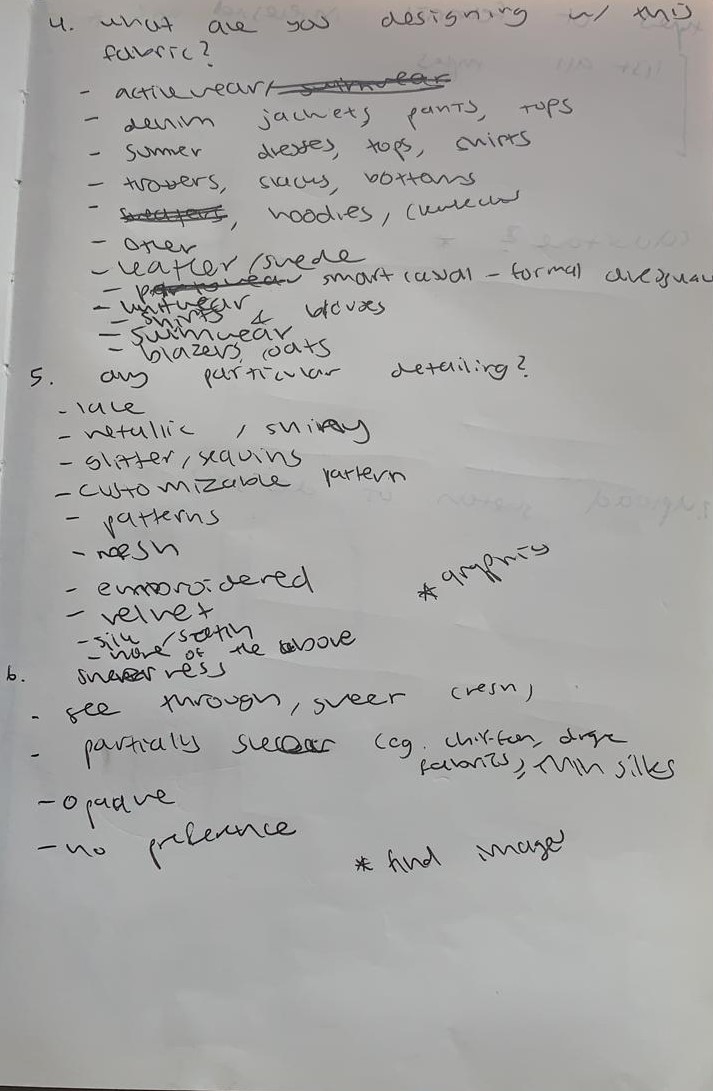 4. what are you designing w/ this
fabric?
- activewear/ swimwear
- denim jackets, pants, tops
- summer dresses, tops, skirts
- trousers, slacks, bottoms
- sweaters, hoodies,
- other
- leather/suede
- smart casual - formal
- knitwear
- shirts & blouses
- swimwear
- blazers, coats
5. any particular detailing?
- lace
- metallic / shiny
- glitter, sequins
- customizable pattern
- patterns
- mesh
- embroidered
* graphics
- velvet
- silk /satin
- none of the above
6. sheerness
- see through, sheer (mesh)
- partially sheer (eg. chiffon,
fabrics, thin silks
- opaque
- no preference
* find image